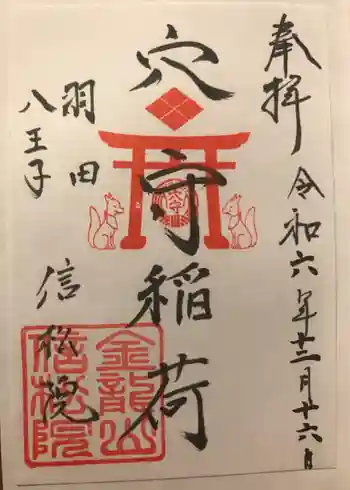 奉拝
令和六年十二月十六日
穴守稲荷
羽田
八王子
信松院
金龍山
信松院